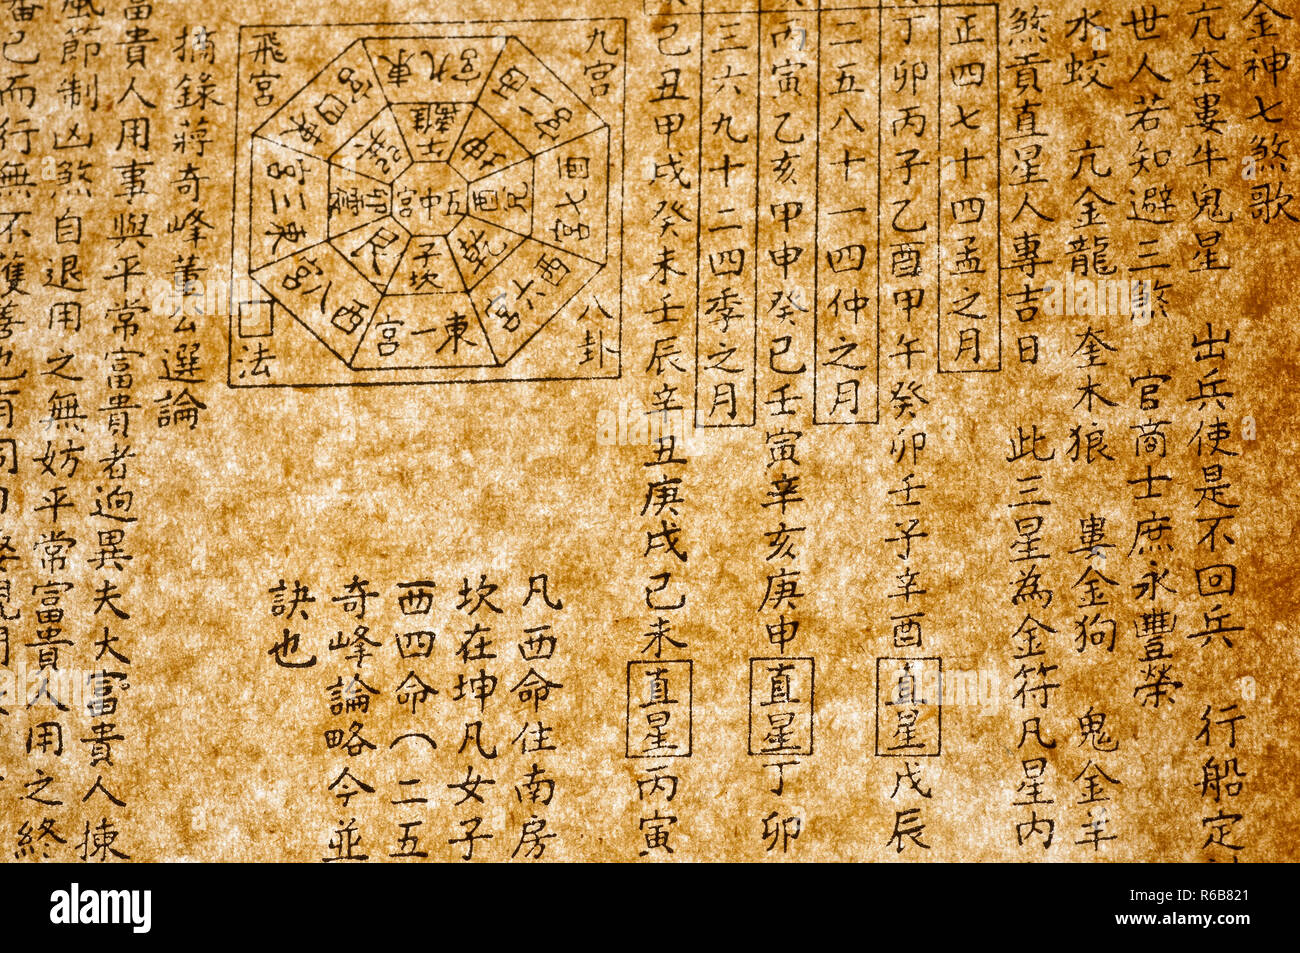 金神七煞歌
亢奎婁牛鬼星 出兵使是不回兵 行船定
世人若知避三煞 官商士庶永豐榮
水蛟 亢金龍 奎木狼 婁金狗 鬼金羊
煞貢直星人專吉日 此三星為金符凡星内
正四七十四孟之月
丁卯丙子乙酉甲午癸卯壬子辛酉 直星 戊辰
二五八十一四仲之月
丙寅乙亥甲申癸巳壬寅辛亥庚申 直星 丁卯
三六九十二四季之月
己丑甲戌癸未壬辰辛丑庚戌己未 直星 丙寅
九宮
八卦
飛宮
□法
東九宮
西二宮
西七宮
西六宮
東一宮
西八宮
東三宮
東四宮
離
坤
兌酉
乾
子坎
艮
震卯
巽
五中宮
凡西命住南房
坎在坤凡女子
西四命（二五
奇峰論略今並
訣也
摘錄蔣奇峰董公選論
富貴人用事與平常富貴者迥異夫大富貴人揀
風節制凶煞自退用之無妨平常富貴人用之終
已而行無不獲善也有同
alamy
Image ID: R6B821
www.alamy.com